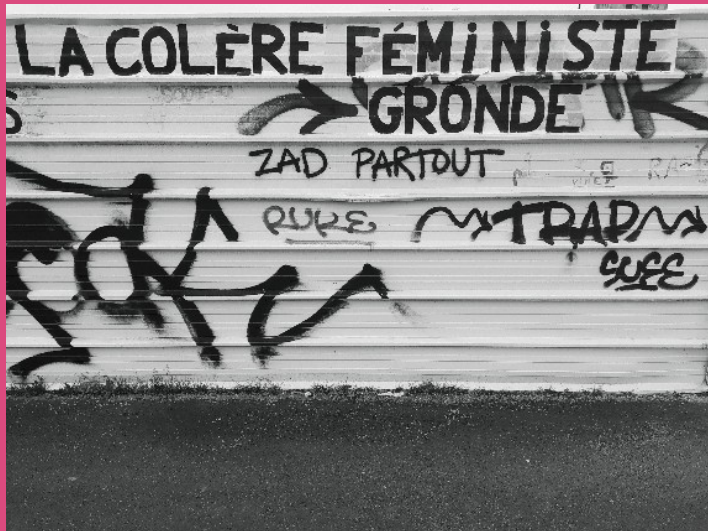 LA COLÈRE FÉMiNiSTE
GRONDE
ZAD PARTOUT
TRAP